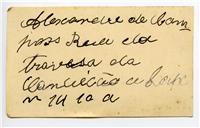 Alexandre de Cam
pos Rua da
travesa da
Conceição a
nº 14 10 a